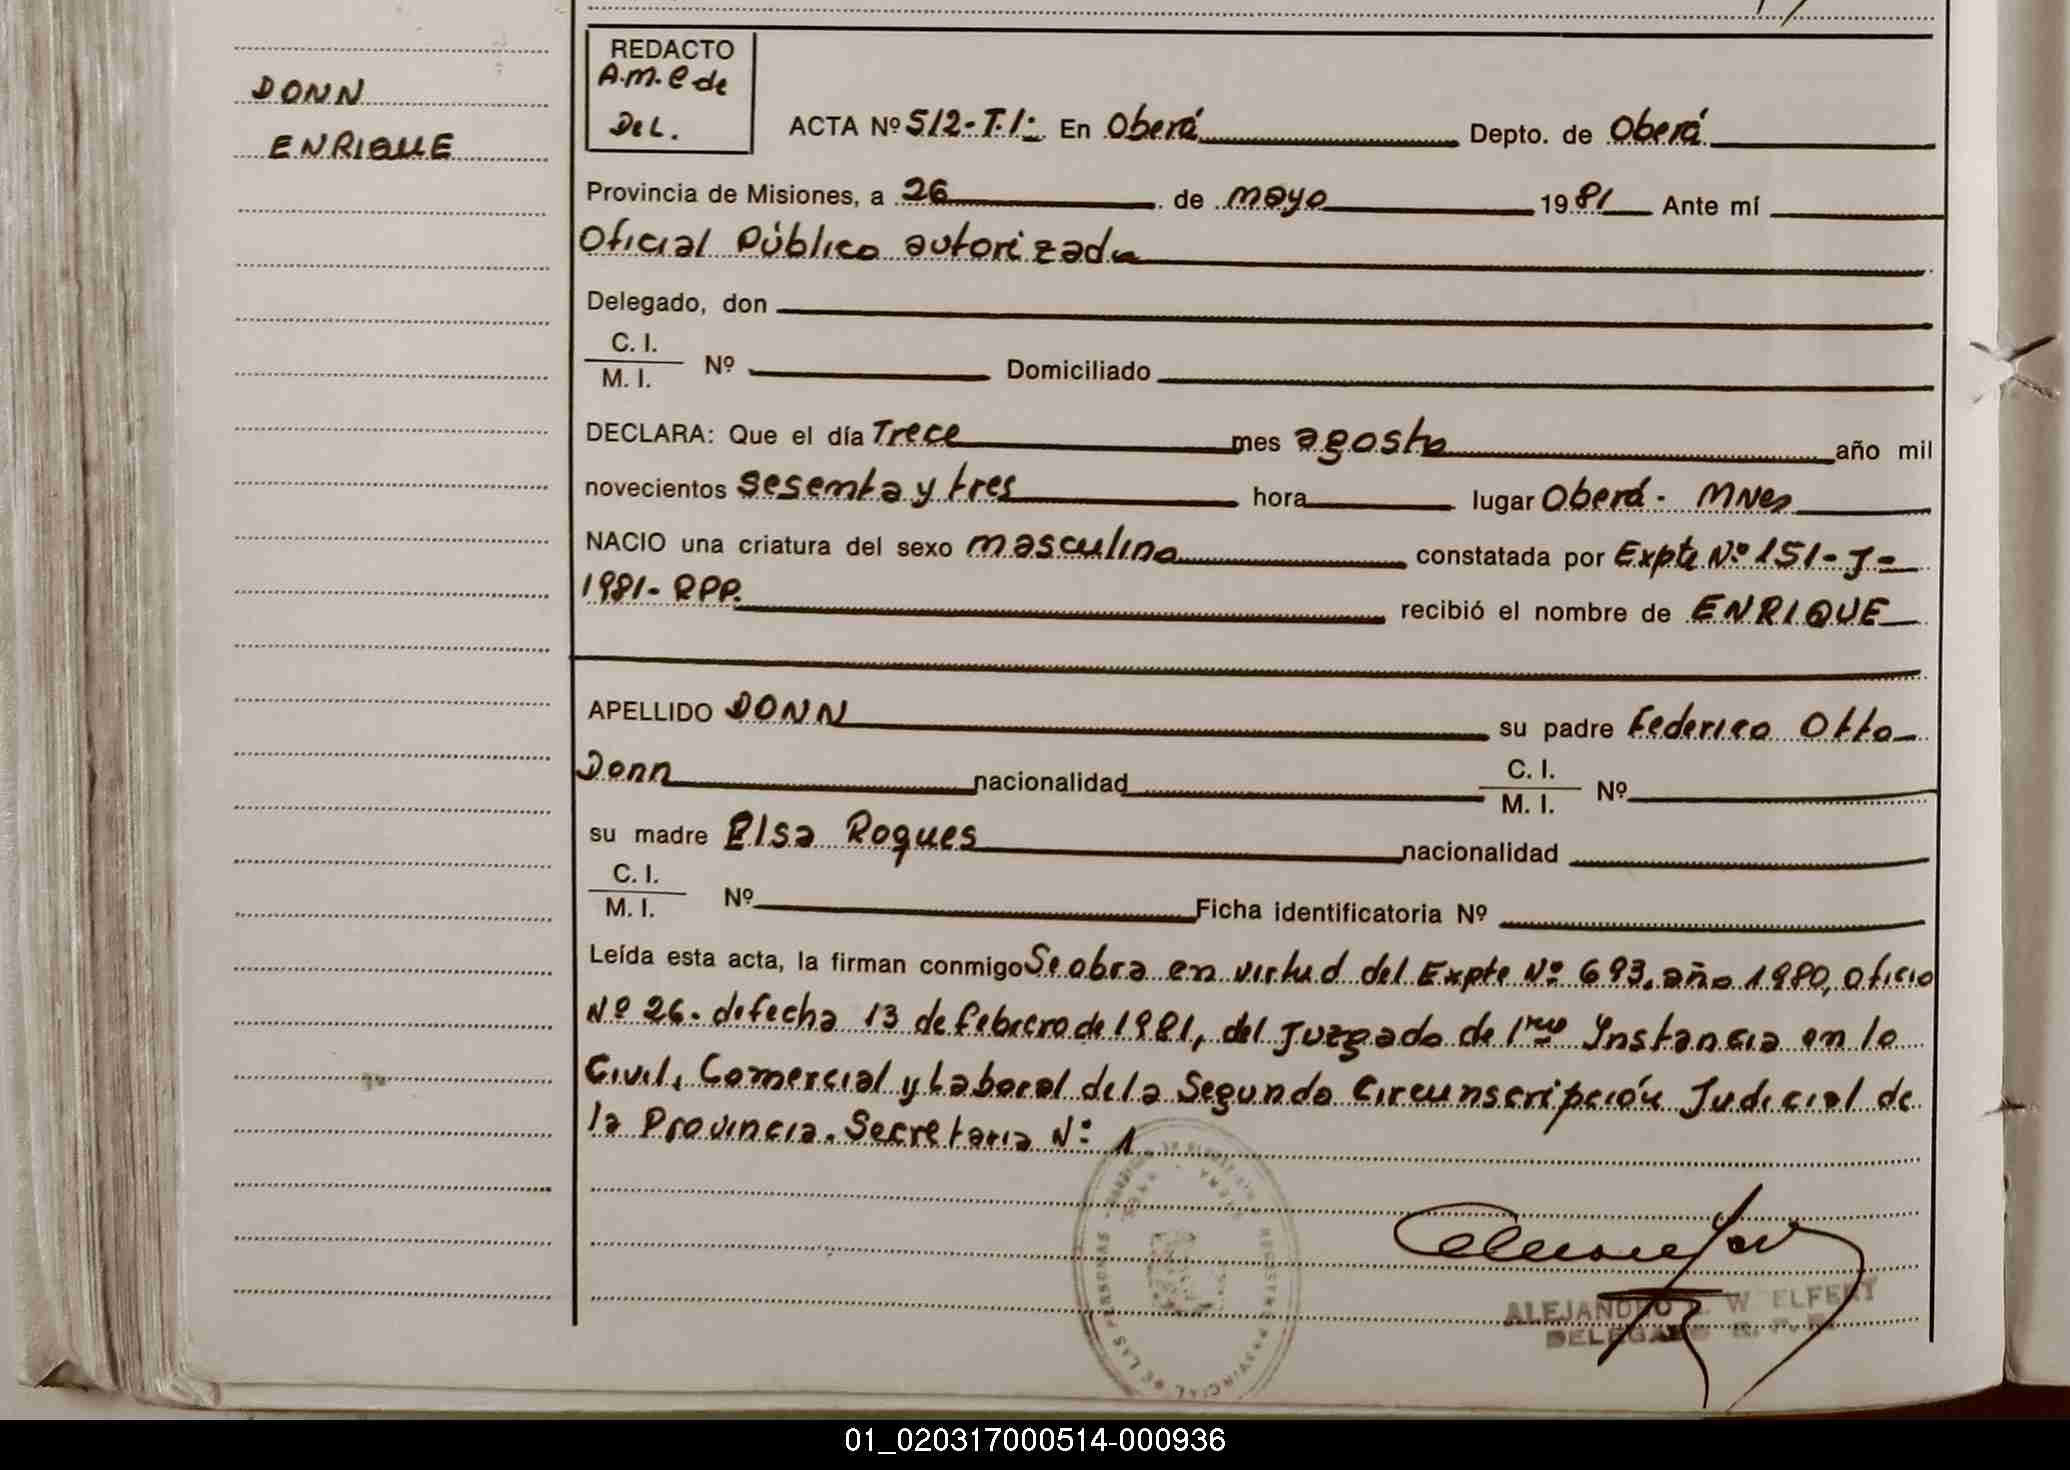 DONN
ENRIQUE
REDACTO
A.M.E de
DEL.
ACTA Nº 512-T.I: En Oberá Depto. de Oberá
Provincia de Misiones, a 26 de mayo 1981 Ante mí
Oficial Público autorizado
Delegado, don
C. I.
M. I. Nº Domiciliado
DECLARA: Que el día Trece mes agosto año mil
novecientos sesenta y tres hora lugar Oberá - MNes
NACIO una criatura del sexo masculino constatada por Expte Nº 151-J-
1981-RPP. recibió el nombre de ENRIQUE
APELLIDO DONN su padre Federico Otto
Donn nacionalidad C. I. M. I. Nº
su madre Elsa Roques nacionalidad
C. I.
M. I. Nº Ficha identificatoria Nº
Leída esta acta, la firman conmigo Se obra en virtud del Expte Nº 693, año 1980, Oficio
Nº 26. de fecha 13 de febrero de 1981, del Juzgado de 1ra Instancia en lo
Civil, Comercial y Laboral de la Segunda Circunscripción Judicial de
la Provincia. Secretaria Nº 1
REGISTRO PROVINCIAL DE LAS PERSONAS
ALEJANDRO W ELFERT
DELEGADO
01_020317000514-000936